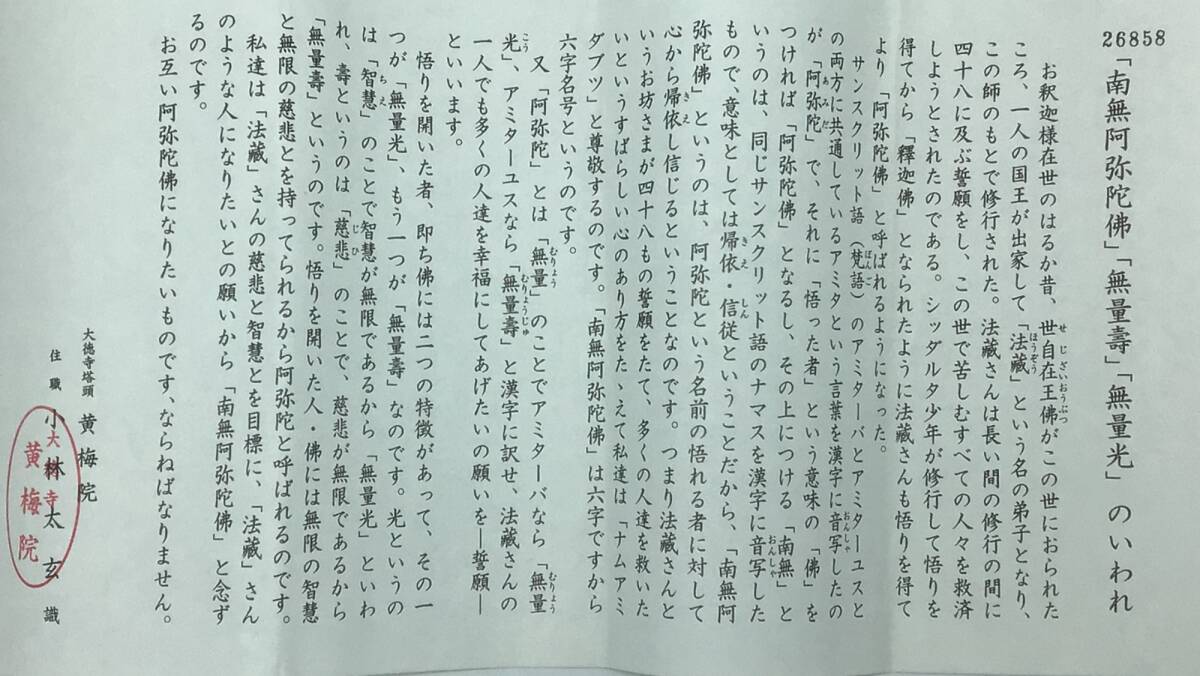 26858
「南無阿弥陀佛」「無量壽」「無量光」のいわれ
お釈迦様在世のはるか昔、世自在王佛がこの世におられた
ころ、一人の国王が出家して「法藏」という名の弟子となり、
この師のもとで修行された。法藏さんは長い間の修行の間に
四十八に及ぶ誓願をし、この世で苦しむすべての人々を救済
しようとされたのである。シッダルタ少年が修行して悟りを
得てから「釋迦佛」となられたように法藏さんも悟りを得て
より「阿弥陀佛」と呼ばれるようになった。
サンスクリット語(梵語)のアミターバとアミターユスと
の両方に共通しているアミタという言葉を漢字に音写したの
が「阿弥陀」で、それに「悟った者」という意味の「佛」を
つければ「阿弥陀佛」となるし、その上につける「南無」と
いうのは、同じサンスクリット語のナマスを漢字に音写した
もので、意味としては帰依・信従ということだから、「南無阿
弥陀佛」というのは、阿弥陀という名前の悟れる者に対して
心から帰依し信じるということなのです。つまり法藏さんと
いうお坊さまが四十八もの誓願をたて、多くの人達を救いた
いというすばらしい心のあり方をたゝえて私達は「ナムアミ
ダブツ」と尊敬するのです。「南無阿弥陀佛」は六字ですから
六字名号というのです。
又、「阿弥陀」とは「無量」のことでアミターバなら「無量
光」、アミターユスなら「無量壽」と漢字に訳せ、法藏さんの
一人でも多くの人達を幸福にしてあげたいの願いを―誓願―
といいます。
悟りを開いた者、即ち佛には二つの特徴があって、その一
つが「無量光」、もう一つが「無量壽」なのです。光というの
は「智慧」のことで智慧が無限であるから「無量光」といわ
れ、壽というのは「慈悲」のことで、慈悲が無限であるから
「無量壽」というのです。悟りを開いた人・佛には無限の智慧
と無限の慈悲とを持ってられるから阿弥陀と呼ばれるのです。
私達は「法藏」さんの慈悲と智慧とを目標に、「法藏」さん
のような人になりたいとの願いから「南無阿弥陀佛」と念ず
るのです。
お互い阿弥陀佛になりたいものです、ならねばなりません。
大徳寺塔頭 黄梅院
住職 小林太玄 識
大林寺
黄梅院